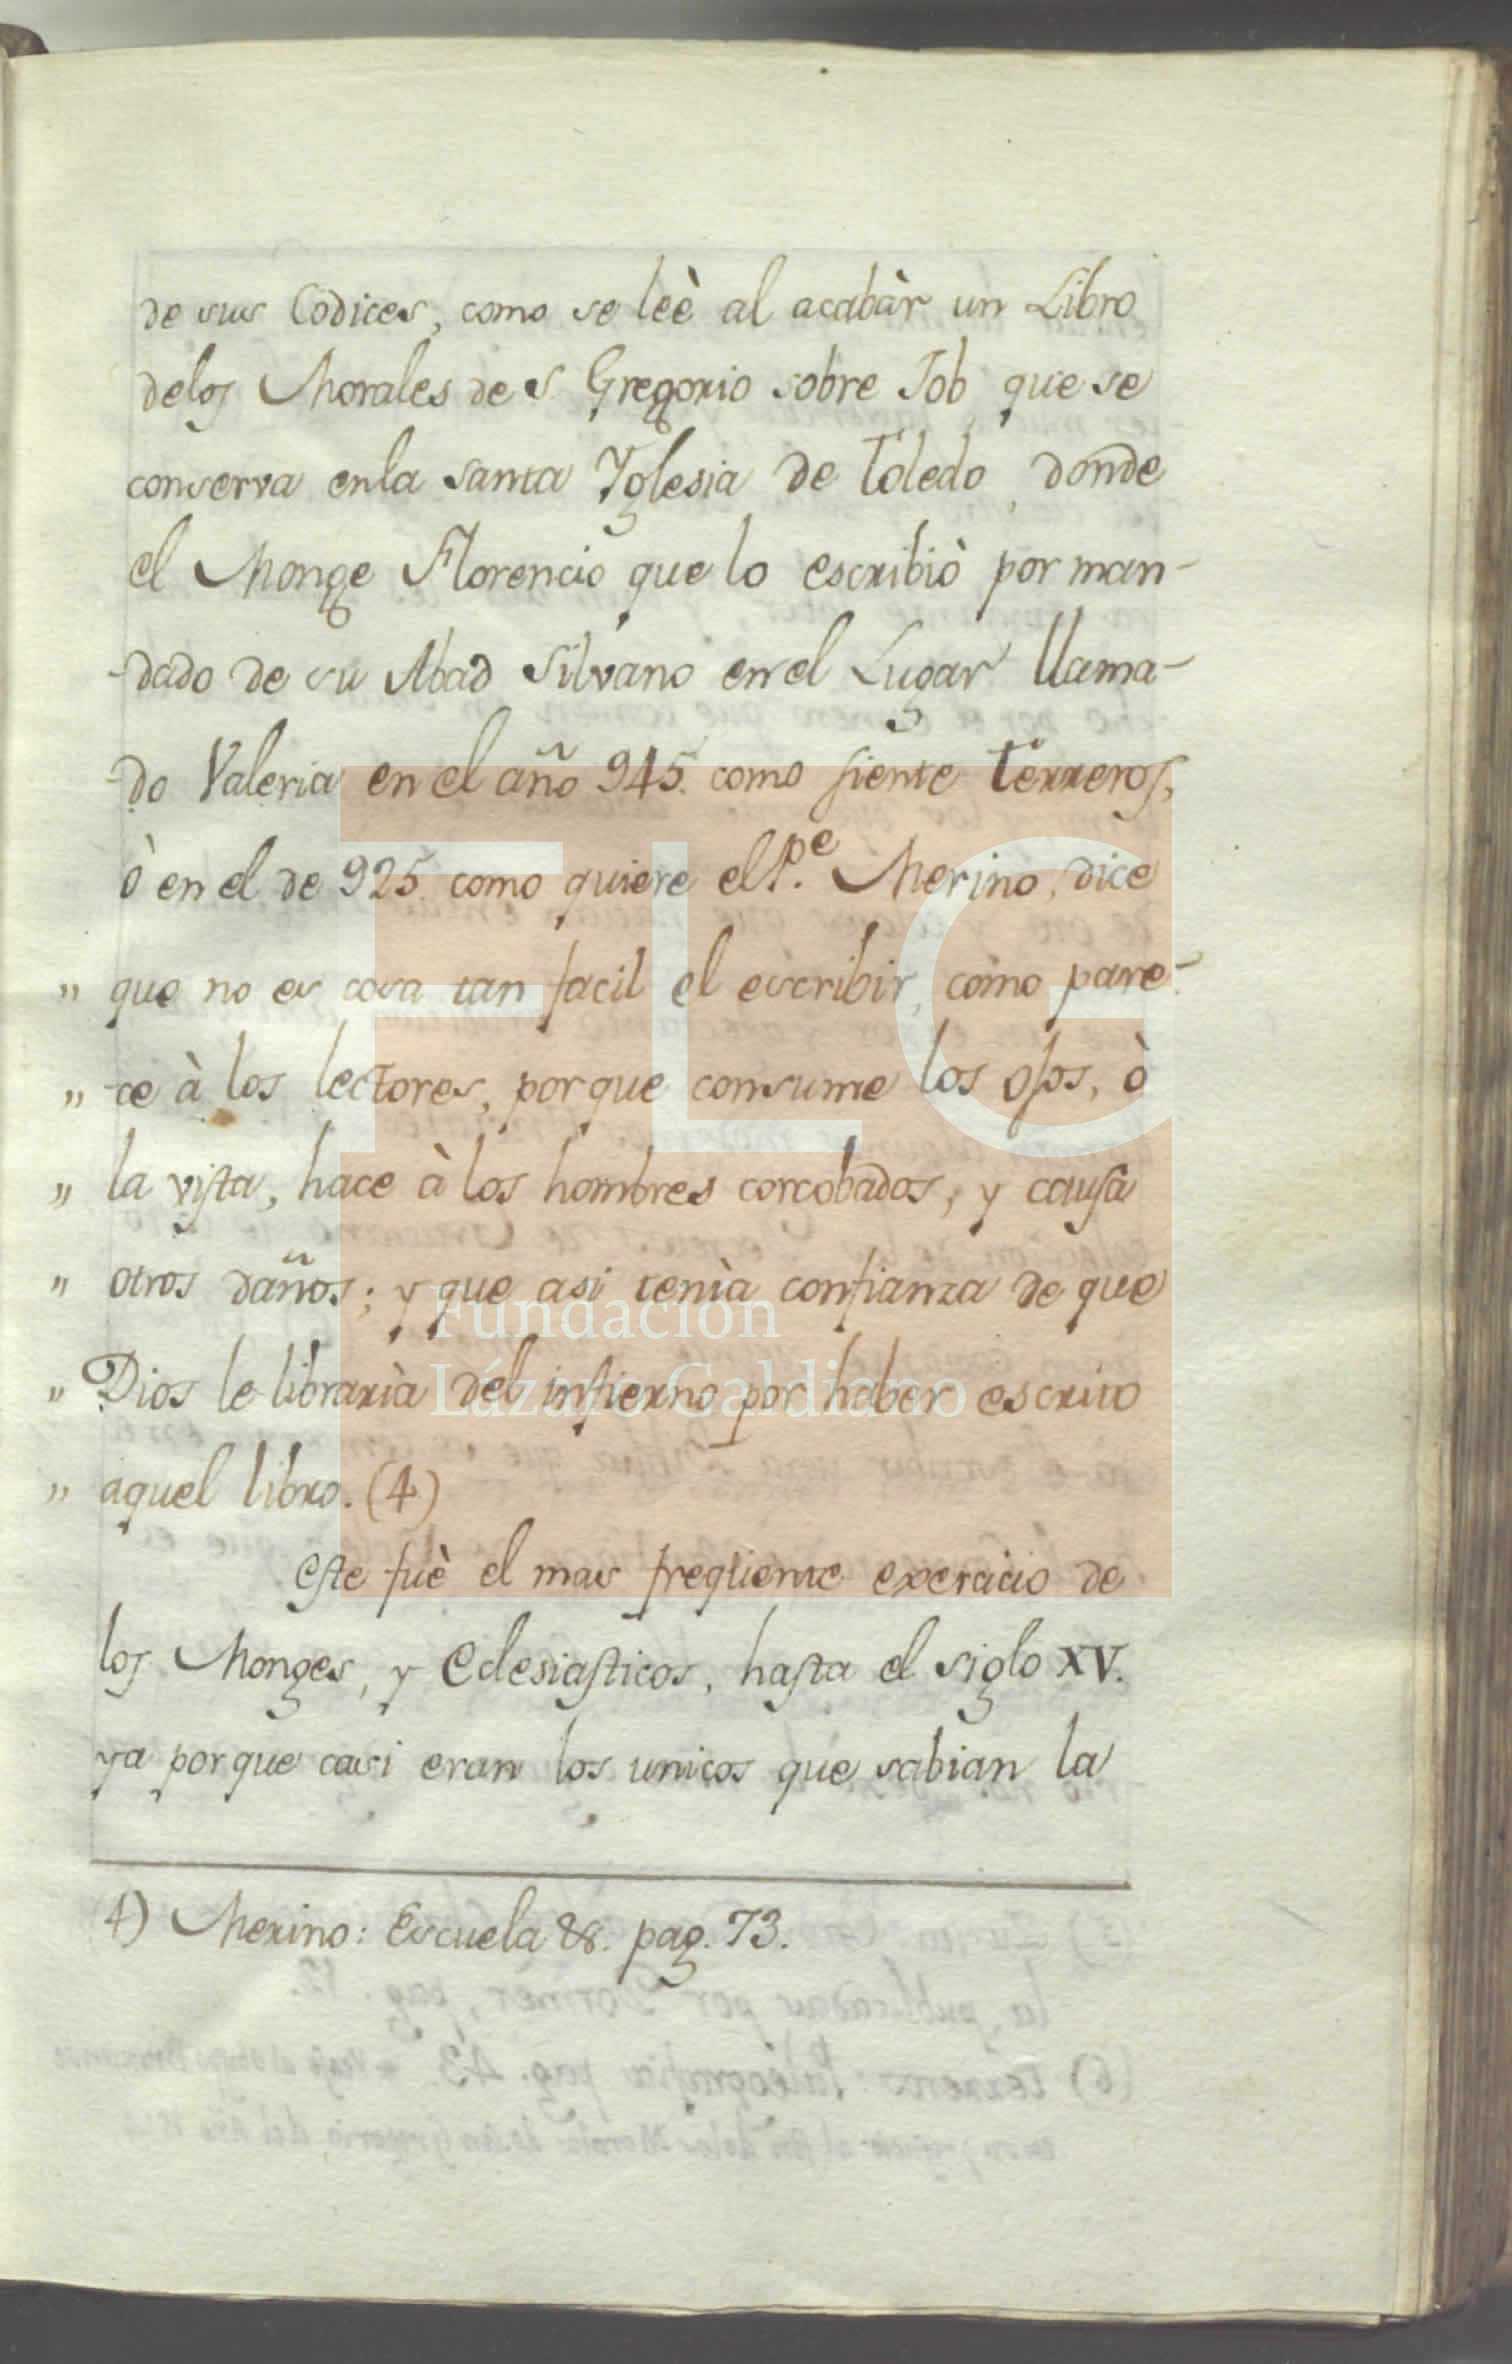 de sus Codices, como se leè al acabàr un Libro
delos Morales de S. Gregorio sobre Job, que se
conserva enla Santa Yglesia de Toledo, donde
el Monge Florencio que lo escribiò por man-
-dado de su Abad Silvano en el Lugar llama-
-do Valeria en el año 945. como siente Terreros,
ò en el de 925. como quiere el P.e Merino, dice
" que no es cosa tan facil el escribir, como pare-
" -ce à los lectores, porque consume los ojos, ò
" la vista, hace à los hombres corcobados, y causa
" otros daños; y que asi tenìa confianza de que
" Dios le librarìa del infierno por haber escrito
" aquel libro. (4)
Este fuè el mas freqüente exercicio de
los Monges, y Eclesiasticos, hasta el siglo XV.
ya porque casi eran los unicos que sabian la
4) Merino: Escuela &. pag. 73.
FLG
Fundación
Lázaro Galdiano